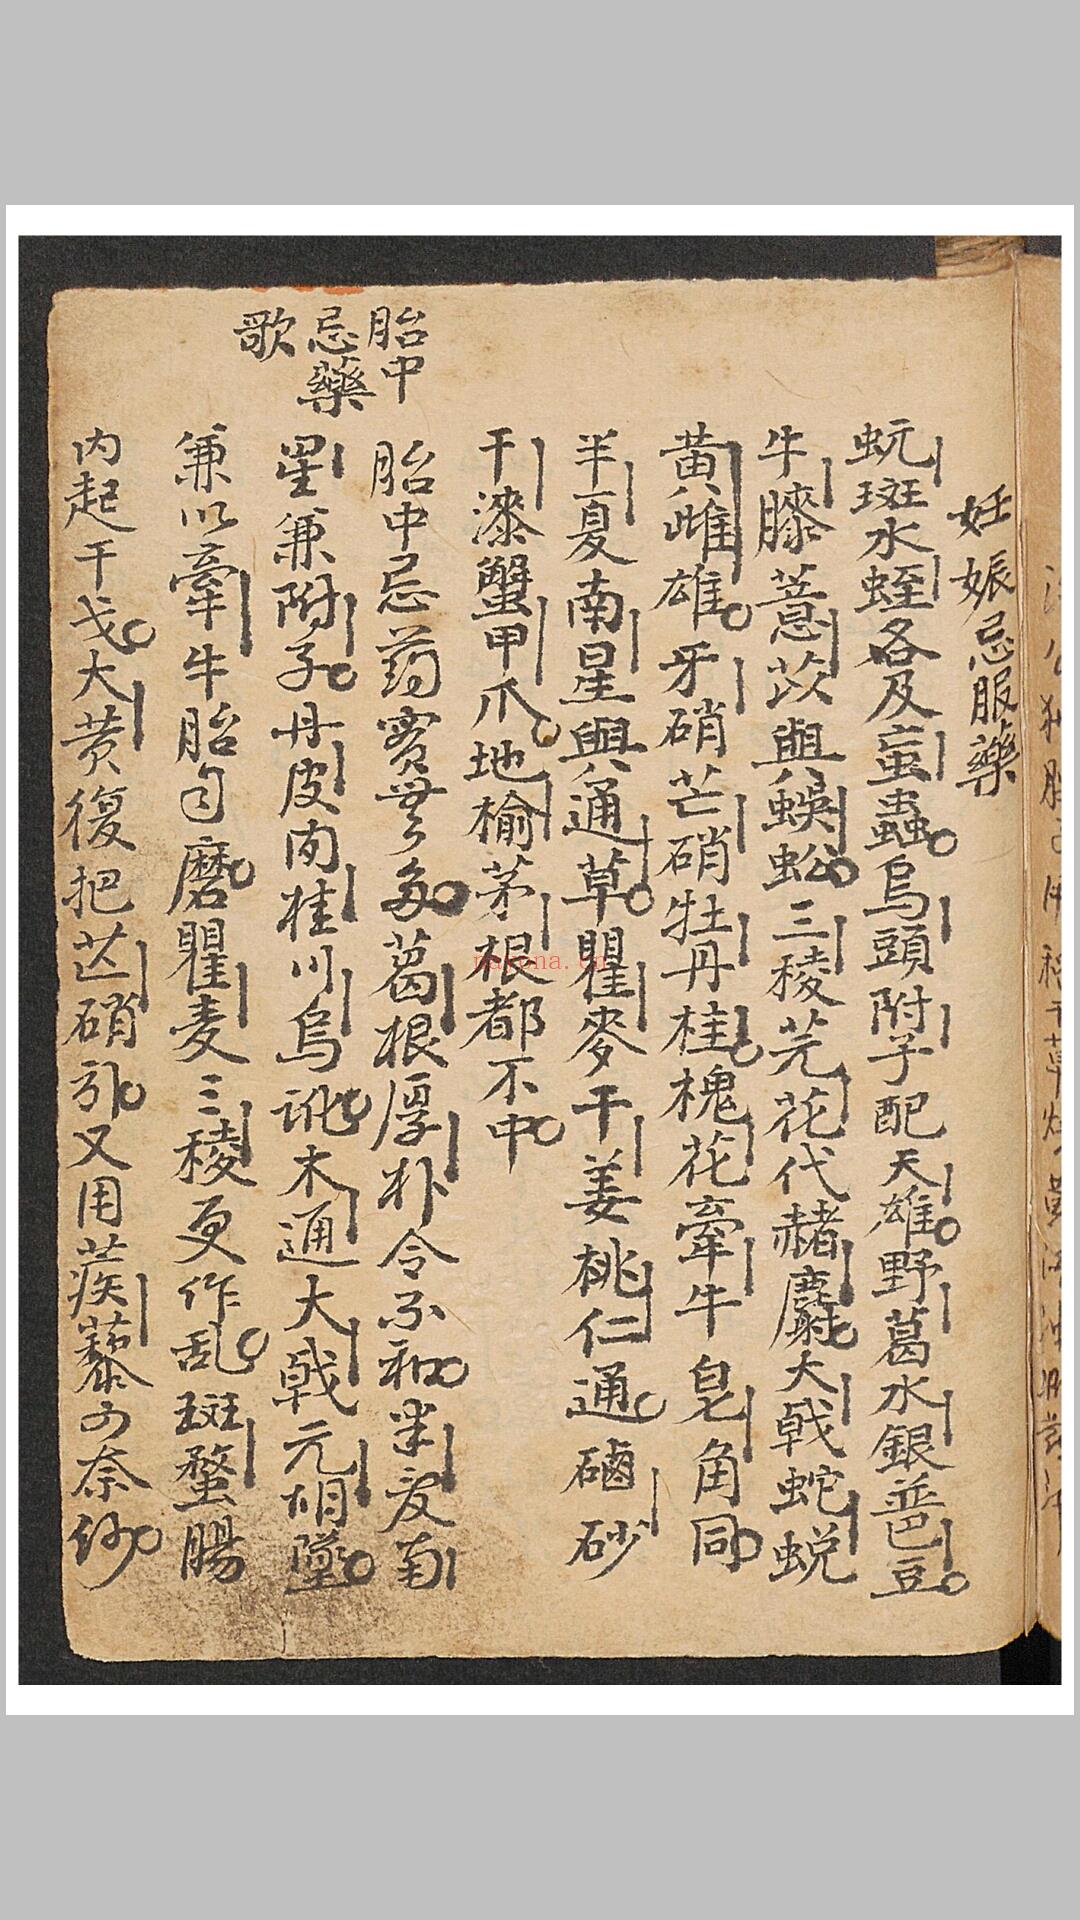 妊娠忌服藥
蚖斑水蛭各及䖟蟲烏頭附子配天雄野葛水銀普巴豆
牛膝薏苡與蜈蚣三稜芫花代赭麝大戟蛇蛻
黃雌雄牙硝芒硝牡丹桂槐花牽牛皂角同
半夏南星與通草瞿麥干姜桃仁通磠砂
干漆蟹甲爪地榆茅根都不中
胎中
忌藥
歌
胎中忌药實無多葛根厚朴令不和半夏南
星兼附子丹皮肉桂川烏訛木通大戟元胡墜
兼以牽牛胎自磨瞿麦三稜更作乱斑蝥腸
内起干戈大黄復把芒硝引又用蒺藜可奈何